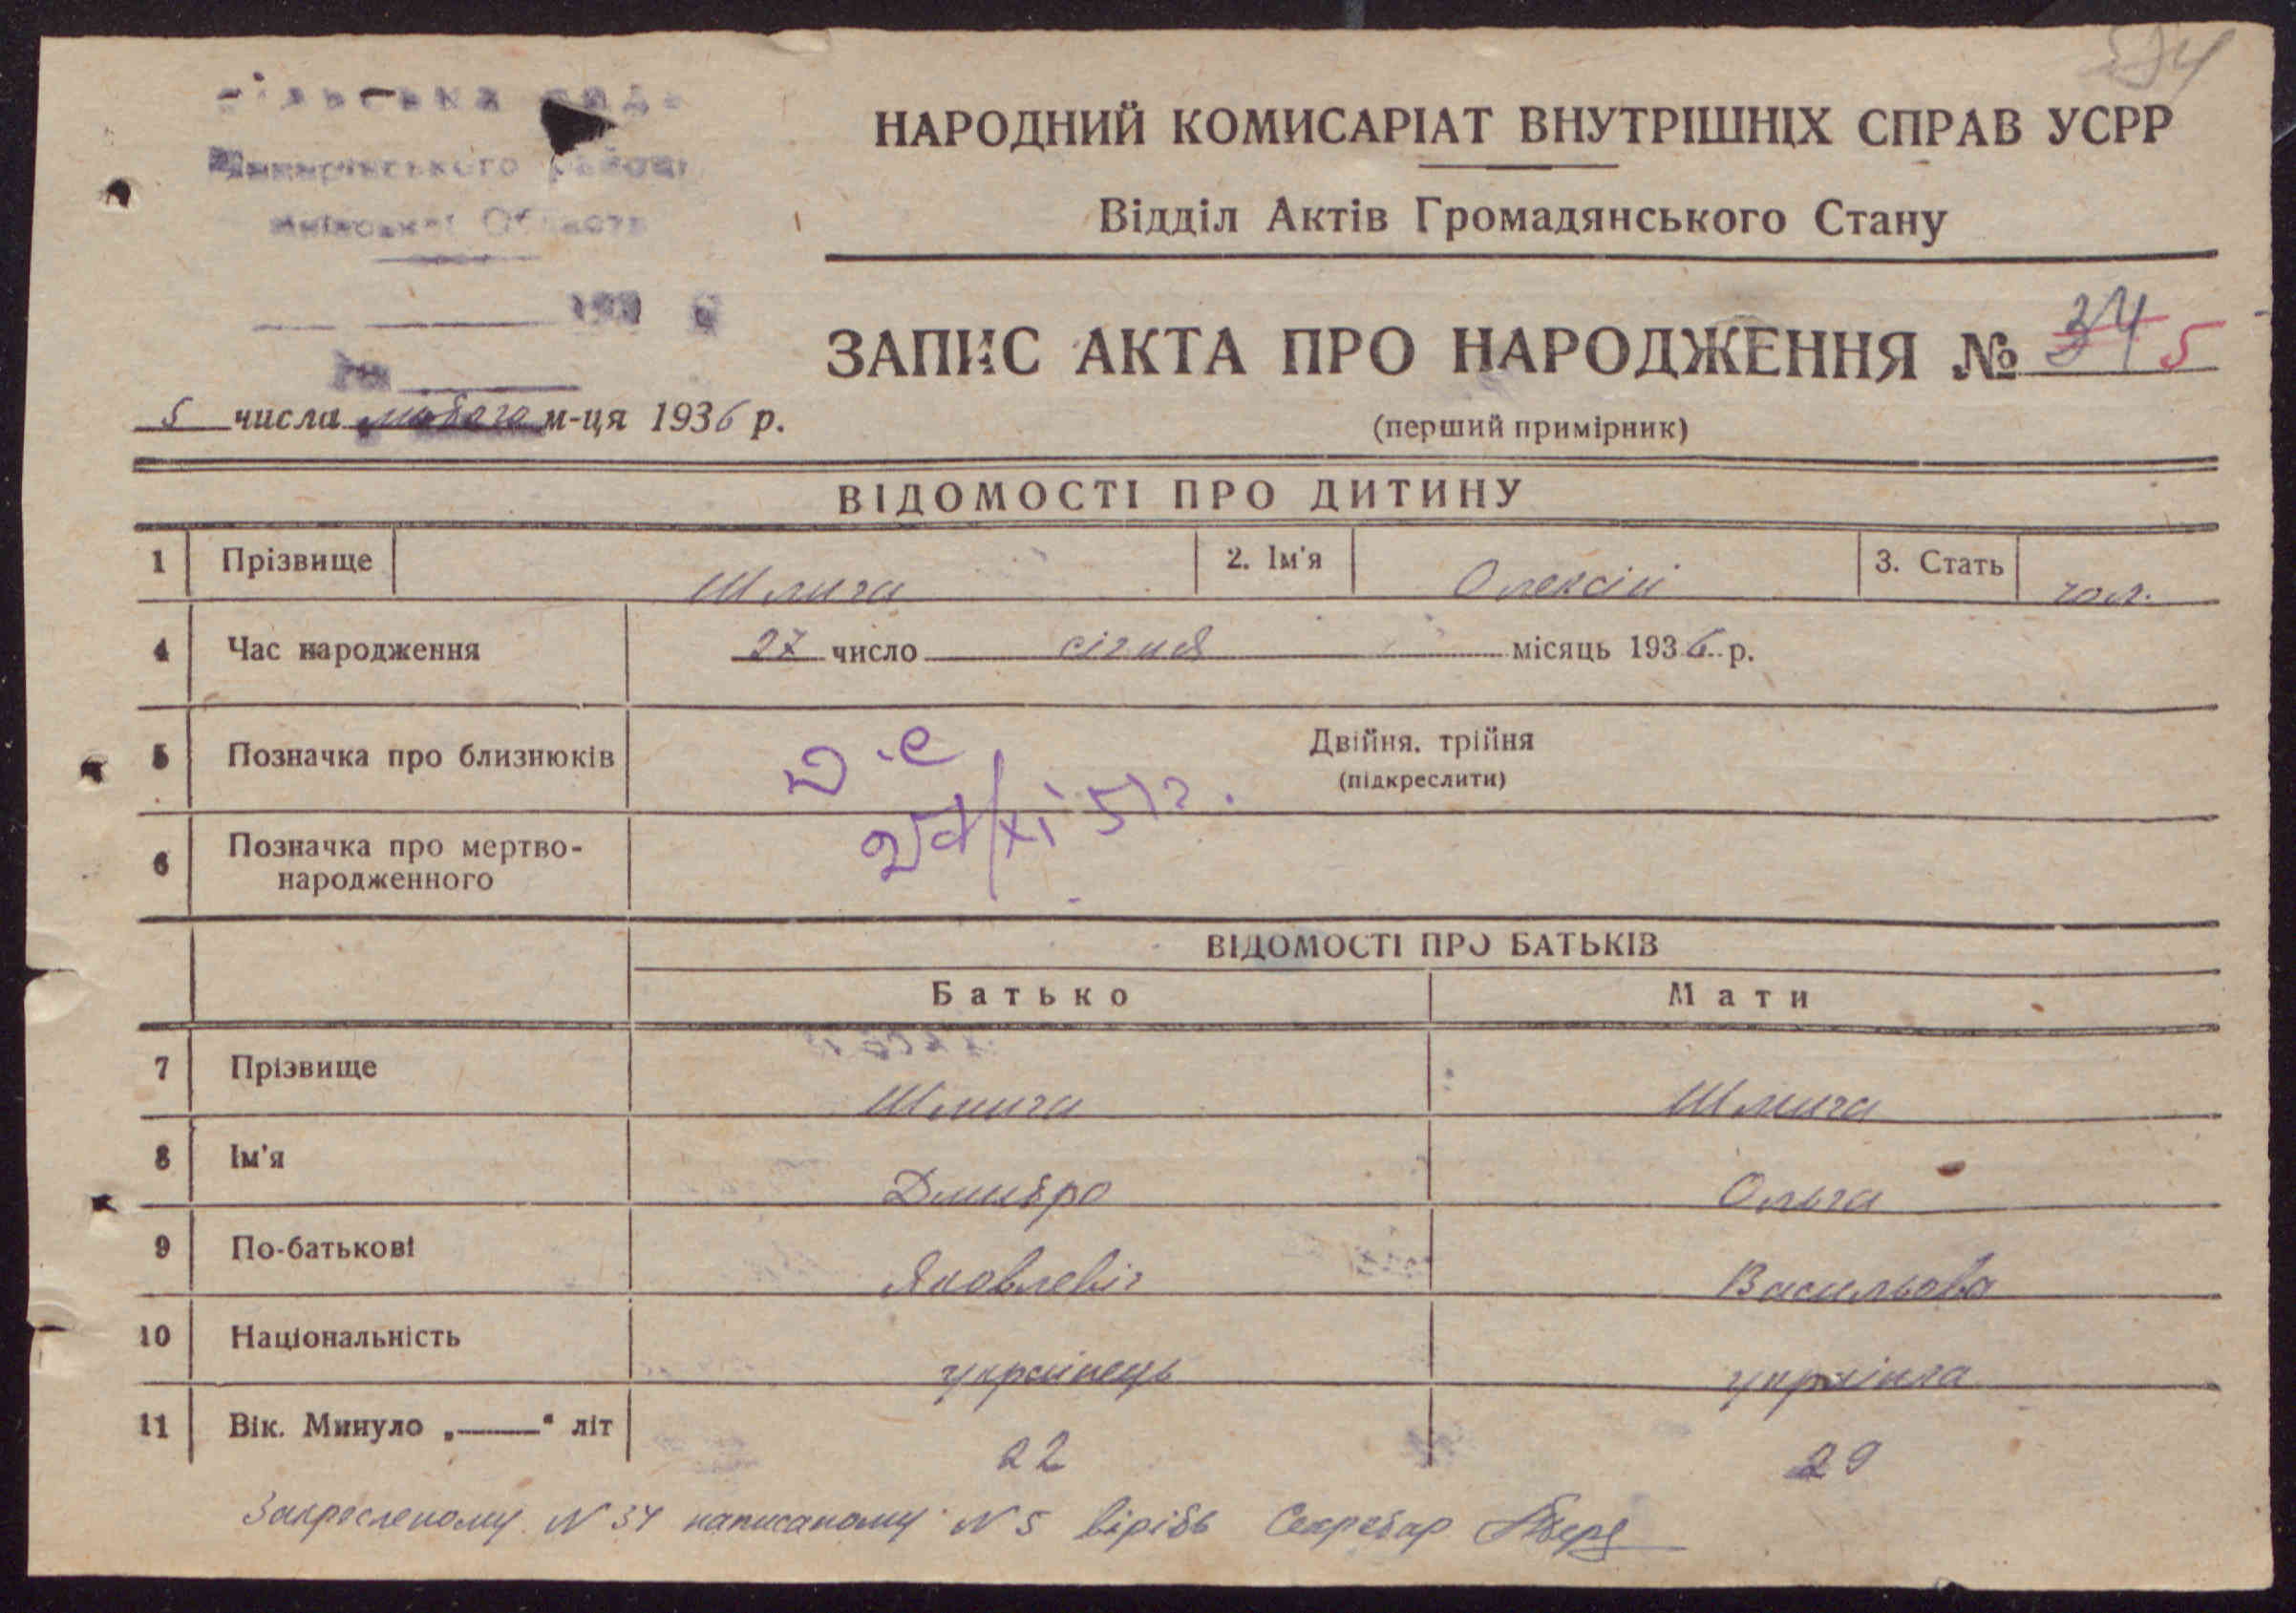 НАРОДНИЙ КОМИСАРІАТ ВНУТРІШНІХ СПРАВ УСРР
Відділ Актів Громадянського Стану
ЗАПИС АКТА ПРО НАРОДЖЕННЯ № 34 5
(перший примірник)
5 числа лютого м-ця 1936 р.
ВІДОМОСТІ ПРО ДИТИНУ
1 Прізвище Шлига 2. Ім'я Олексій 3. Стать чол.
4 Час народження 27 число січня місяць 1936 р.
5 Позначка про близнюків Двійня, трійня
(підкреслити)
6 Позначка про мертво-
народженного
ВІДОМОСТІ ПРО БАТЬКІВ
Батько Мати
7 Прізвище Шлига Шлига
8 Ім'я Дмитро Ольга
9 По-батькові Яковлевіч Васильова
10 Національність українець українка
11 Вік. Минуло „——“ літ 22 29
Закресленому N 34 написаному N 5 вірить Секретар